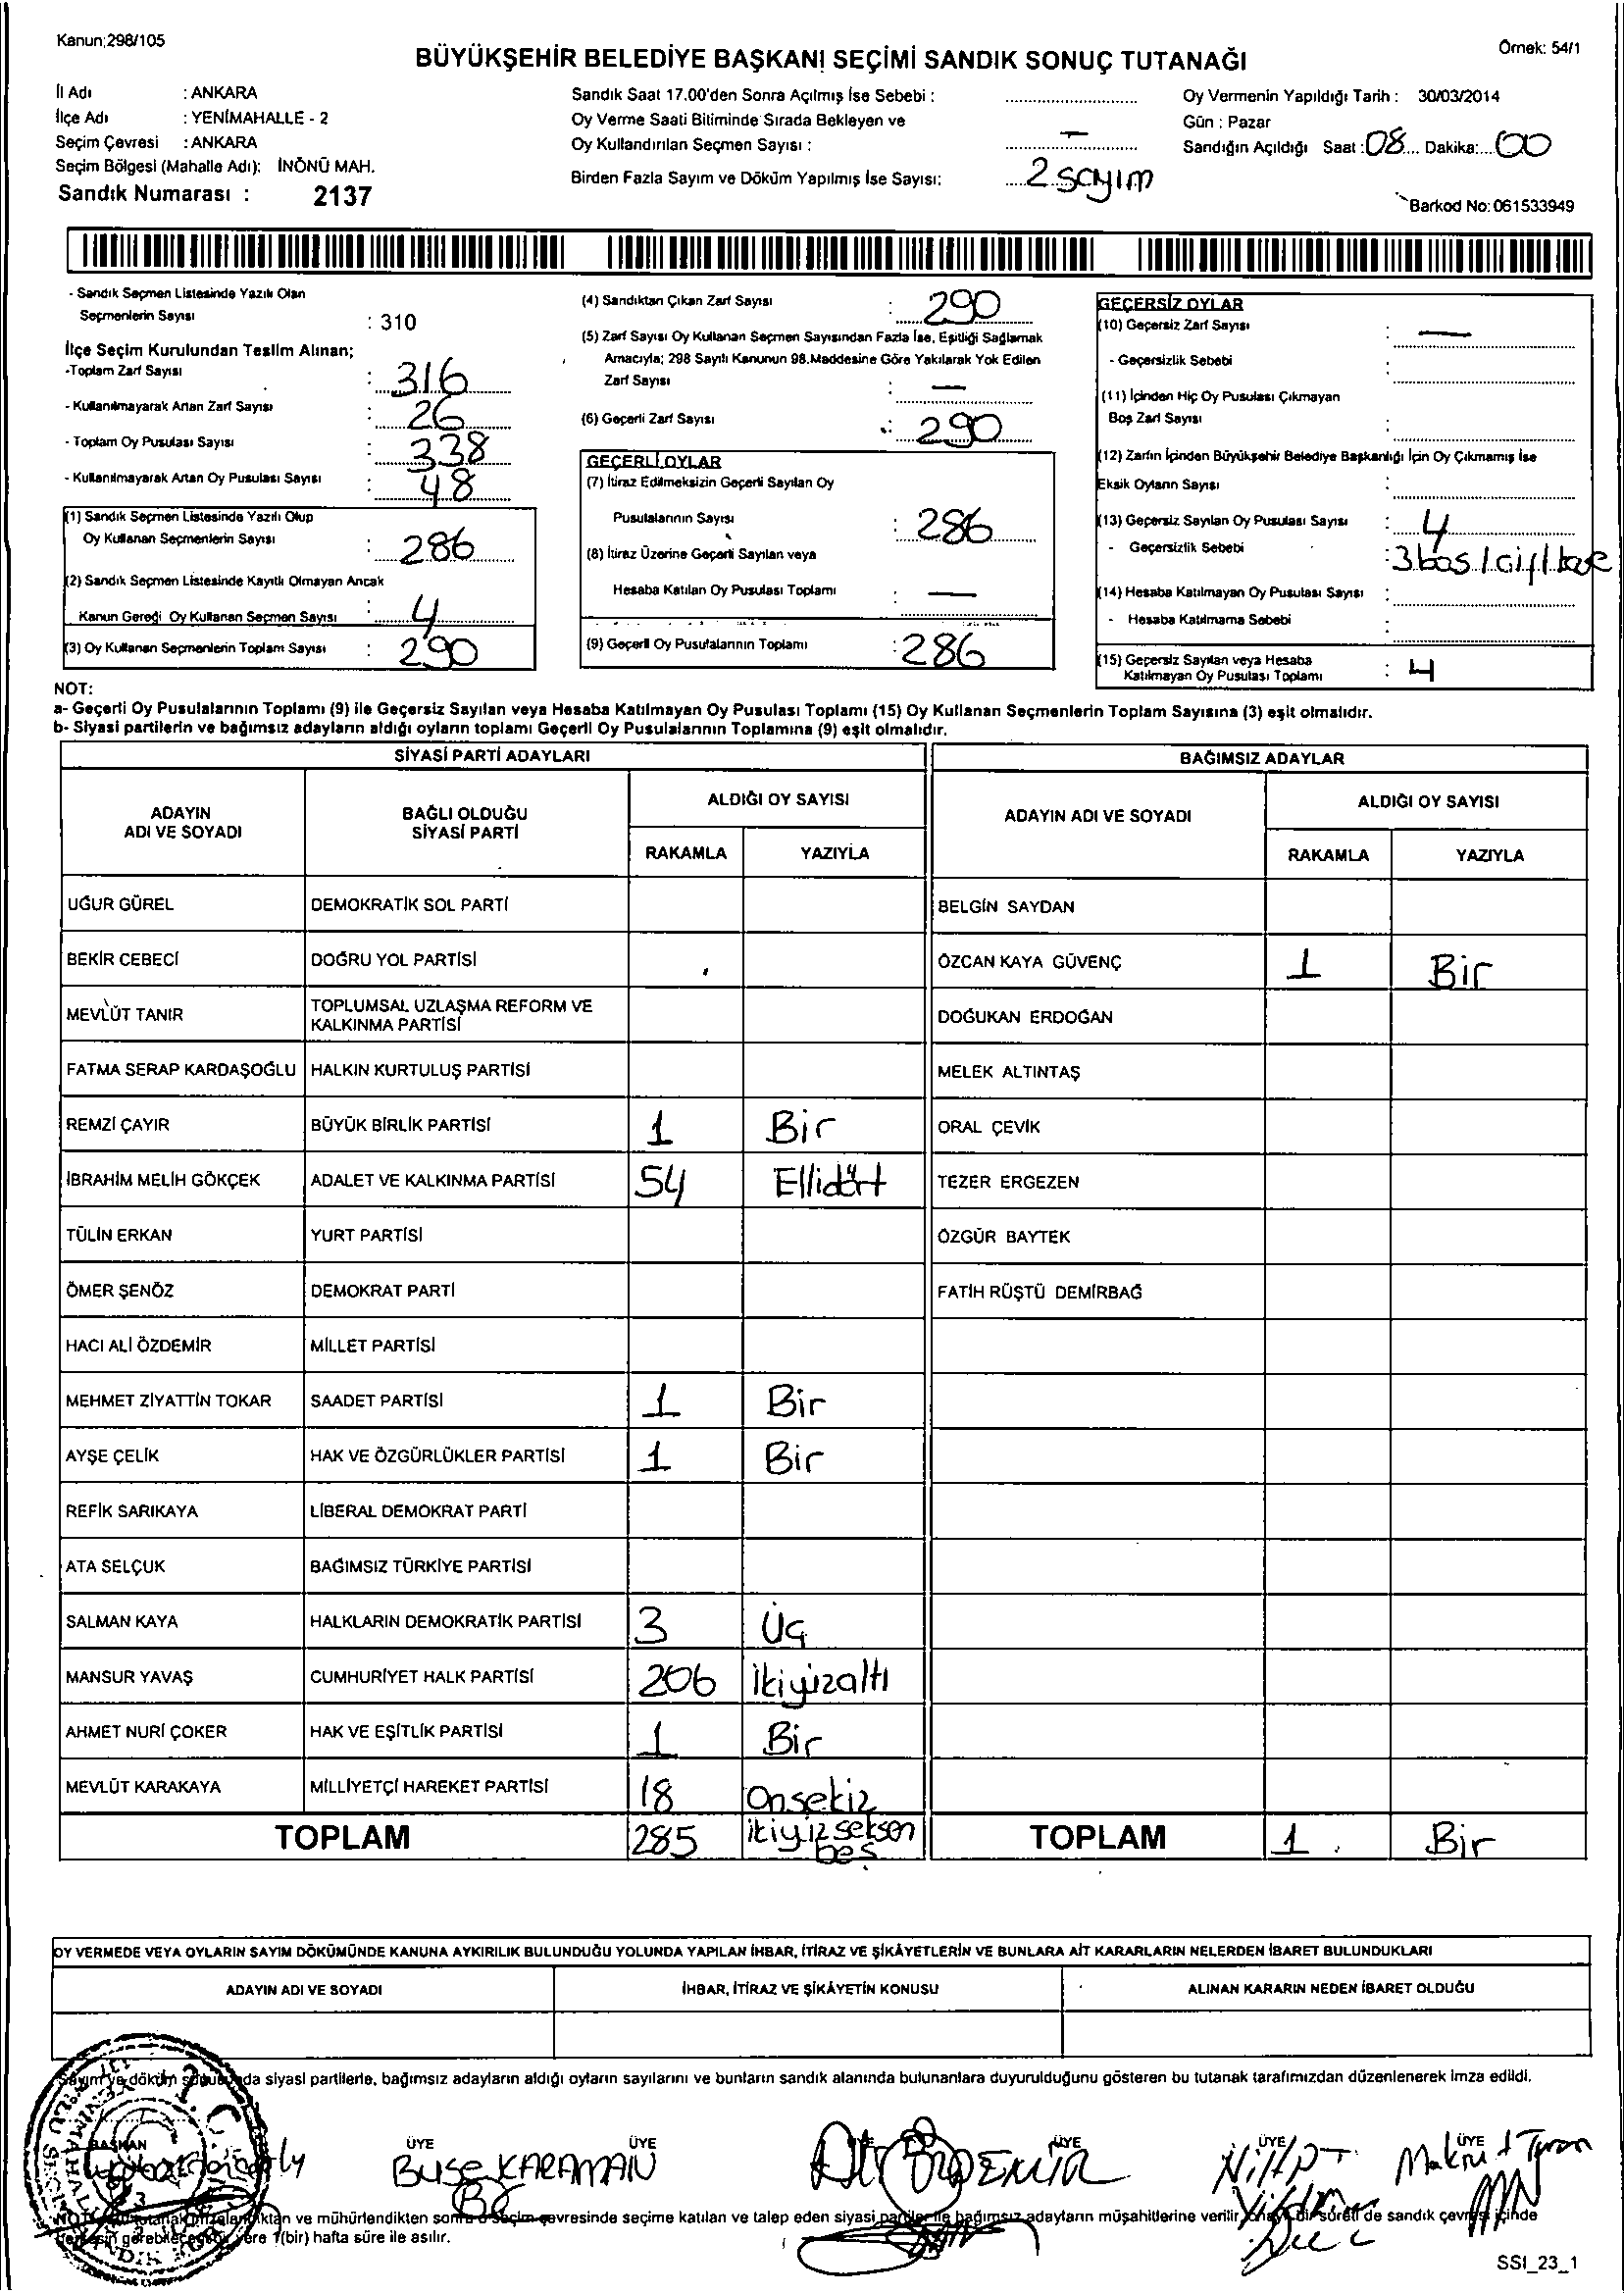 Kanun;298/105
Örnek: 54/1
BÜYÜKŞEHİR BELEDİYE BAŞKANI SEÇİMİ SANDIK SONUÇ TUTANAĞI
İl Adı : ANKARA
İlçe Adı : YENİMAHALLE - 2
Seçim Çevresi : ANKARA
Seçim Bölgesi (Mahalle Adı): İNÖNÜ MAH.
Sandık Numarası : 2137
Sandık Saat 17.00'den Sonra Açılmış İse Sebebi :
Oy Verme Saati Bitiminde Sırada Bekleyen ve
Oy Kullandırılan Seçmen Sayısı : —
Birden Fazla Sayım ve Döküm Yapılmış İse Sayısı: 2 sayım
Oy Vermenin Yapıldığı Tarih : 30/03/2014
Gün : Pazar
Sandığın Açıldığı Saat : 08 Dakika: 00
Barkod No: 061533949
- Sandık Seçmen Listesinde Yazılı Olan
Seçmenlerin Sayısı : 310
İlçe Seçim Kurulundan Teslim Alınan;
-Toplam Zarf Sayısı : 316
- Kullanılmayarak Artan Zarf Sayısı : 26
- Toplam Oy Pusulası Sayısı : 338
- Kullanılmayarak Artan Oy Pusulası Sayısı : 48
(1) Sandık Seçmen Listesinde Yazılı Olup
Oy Kullanan Seçmenlerin Sayısı : 286
(2) Sandık Seçmen Listesinde Kayıtlı Olmayan Ancak
Kanun Gereği Oy Kullanan Seçmen Sayısı : 4
(3) Oy Kullanan Seçmenlerin Toplam Sayısı : 290
(4) Sandıktan Çıkan Zarf Sayısı : 290
(5) Zarf Sayısı Oy Kullanan Seçmen Sayısından Fazla İse, Eşitliği Sağlamak
Amacıyla; 298 Sayılı Kanunun 98.Maddesine Göre Yakılarak Yok Edilen
Zarf Sayısı : —
(6) Geçerli Zarf Sayısı : 290
GEÇERLİ OYLAR
(7) İtiraz Edilmeksizin Geçerli Sayılan Oy
Pusulalarının Sayısı : 286
(8) İtiraz Üzerine Geçerli Sayılan veya
Hesaba Katılan Oy Pusulası Toplamı : —
(9) Geçerli Oy Pusulalarının Toplamı : 286
GEÇERSİZ OYLAR
(10) Geçersiz Zarf Sayısı : —
- Geçersizlik Sebebi :
(11) İçinden Hiç Oy Pusulası Çıkmayan
Boş Zarf Sayısı :
(12) Zarfın İçinden Büyükşehir Belediye Başkanlığı İçin Oy Çıkmamış İse
Eksik Oyların Sayısı :
(13) Geçersiz Sayılan Oy Pusulası Sayısı : 4
- Geçersizlik Sebebi : 3 boş 1 çift
(14) Hesaba Katılmayan Oy Pusulası Sayısı :
- Hesaba Katılmama Sebebi :
(15) Geçersiz Sayılan veya Hesaba
Katılmayan Oy Pusulası Toplamı : 4
NOT:
a- Geçerli Oy Pusulalarının Toplamı (9) ile Geçersiz Sayılan veya Hesaba Katılmayan Oy Pusulası Toplamı (15) Oy Kullanan Seçmenlerin Toplam Sayısına (3) eşit olmalıdır.
b- Siyasi partilerin ve bağımsız adayların aldığı oyların toplamı Geçerli Oy Pusulalarının Toplamına (9) eşit olmalıdır.
SİYASİ PARTİ ADAYLARI BAĞIMSIZ ADAYLAR
ADAYIN ADI VE SOYADI BAĞLI OLDUĞU SİYASİ PARTİ ALDIĞI OY SAYISI ADAYIN ADI VE SOYADI ALDIĞI OY SAYISI
RAKAMLA YAZIYLA RAKAMLA YAZIYLA
UĞUR GÜREL DEMOKRATİK SOL PARTİ BELGİN SAYDAN
BEKİR CEBECİ DOĞRU YOL PARTİSİ ÖZCAN KAYA GÜVENÇ 1 Bir
MEVLÜT TANIR TOPLUMSAL UZLAŞMA REFORM VE KALKINMA PARTİSİ DOĞUKAN ERDOĞAN
FATMA SERAP KARDAŞOĞLU HALKIN KURTULUŞ PARTİSİ MELEK ALTINTAŞ
REMZİ ÇAYIR BÜYÜK BİRLİK PARTİSİ 1 Bir ORAL ÇEVİK
İBRAHİM MELİH GÖKÇEK ADALET VE KALKINMA PARTİSİ 54 Ellidört TEZER ERGEZEN
TÜLİN ERKAN YURT PARTİSİ ÖZGÜR BAYTEK
ÖMER ŞENÖZ DEMOKRAT PARTİ FATİH RÜŞTÜ DEMİRBAĞ
HACI ALİ ÖZDEMİR MİLLET PARTİSİ
MEHMET ZİYATTİN TOKAR SAADET PARTİSİ 1 Bir
AYŞE ÇELİK HAK VE ÖZGÜRLÜKLER PARTİSİ 1 Bir
REFİK SARIKAYA LİBERAL DEMOKRAT PARTİ
ATA SELÇUK BAĞIMSIZ TÜRKİYE PARTİSİ
SALMAN KAYA HALKLARIN DEMOKRATİK PARTİSİ 3 Üç
MANSUR YAVAŞ CUMHURİYET HALK PARTİSİ 206 İkiyüzaltı
AHMET NURİ ÇOKER HAK VE EŞİTLİK PARTİSİ 1 Bir
MEVLÜT KARAKAYA MİLLİYETÇİ HAREKET PARTİSİ 18 Onsekiz
TOPLAM 285 ikiyüzseksen beş TOPLAM 1 Bir
OY VERMEDE VEYA OYLARIN SAYIM DÖKÜMÜNDE KANUNA AYKIRILIK BULUNDUĞU YOLUNDA YAPILAN İHBAR, İTİRAZ VE ŞİKÂYETLERİN VE BUNLARA AİT KARARLARIN NELERDEN İBARET BULUNDUKLARI
ADAYIN ADI VE SOYADI İHBAR, İTİRAZ VE ŞİKÂYETİN KONUSU ALINAN KARARIN NEDEN İBARET OLDUĞU
Sayım ve döküm sonucunda siyasi partilerle, bağımsız adayların aldığı oyların sayılarını ve bunların sandık alanında bulunanlara duyurulduğunu gösteren bu tutanak tarafımızdan düzenlenerek imza edildi.
T.C.
BAŞKAN ÜYE ÜYE ÜYE ÜYE ÜYE
Buse KARAMAN ÖZDEMİR
ve mühürlendikten sonra o seçim çevresinde seçime katılan ve talep eden siyasi partiler ile bağımsız adayların müşahitlerine verilir, bir sureti de sandık çevresi içinde
yere 1(bir) hafta süre ile asılır.
SSI_23_1